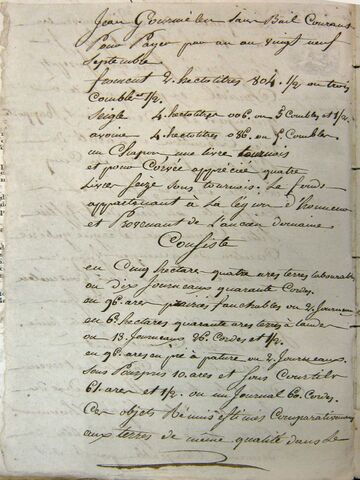 Jean Gourmelen sans Bail Courant
Pour Payer par an au vingt neuf
Septembre
froment 2. hectolitres 804. 1/2 ou trois
Combles 1/2.
Seigle 4. hectolitres 006. ou 5 Combles et 1/2.
avoine 4. hectolitres 086. ou 5 Combles.
un Chapon une livre tournois
et pour Corvée appréciée quatre
Livres seize sous tournois. Le fonds
appartenant à La légion d'honneur
et Provenant de L'ancien domaine
Consiste
en Cinq hectares quatre ares terres labourables
ou dix Journeaux quarante Cordes.
en 96. ares prairies fauchables ou 2. Journeaux
en 6. hectares quarante ares terres à lande
ou 13. Journeaux 26. Cordes et 1/2.
en 96. ares en pré à pature ou 2. Journeaux.
Sous Pourpris 10. ares et sous Courtils
61. ares et 1/2. ou un Journal 60. Cordes.
Ces objets Réunis estimés Comparativement
aux terres de même qualité dans Le